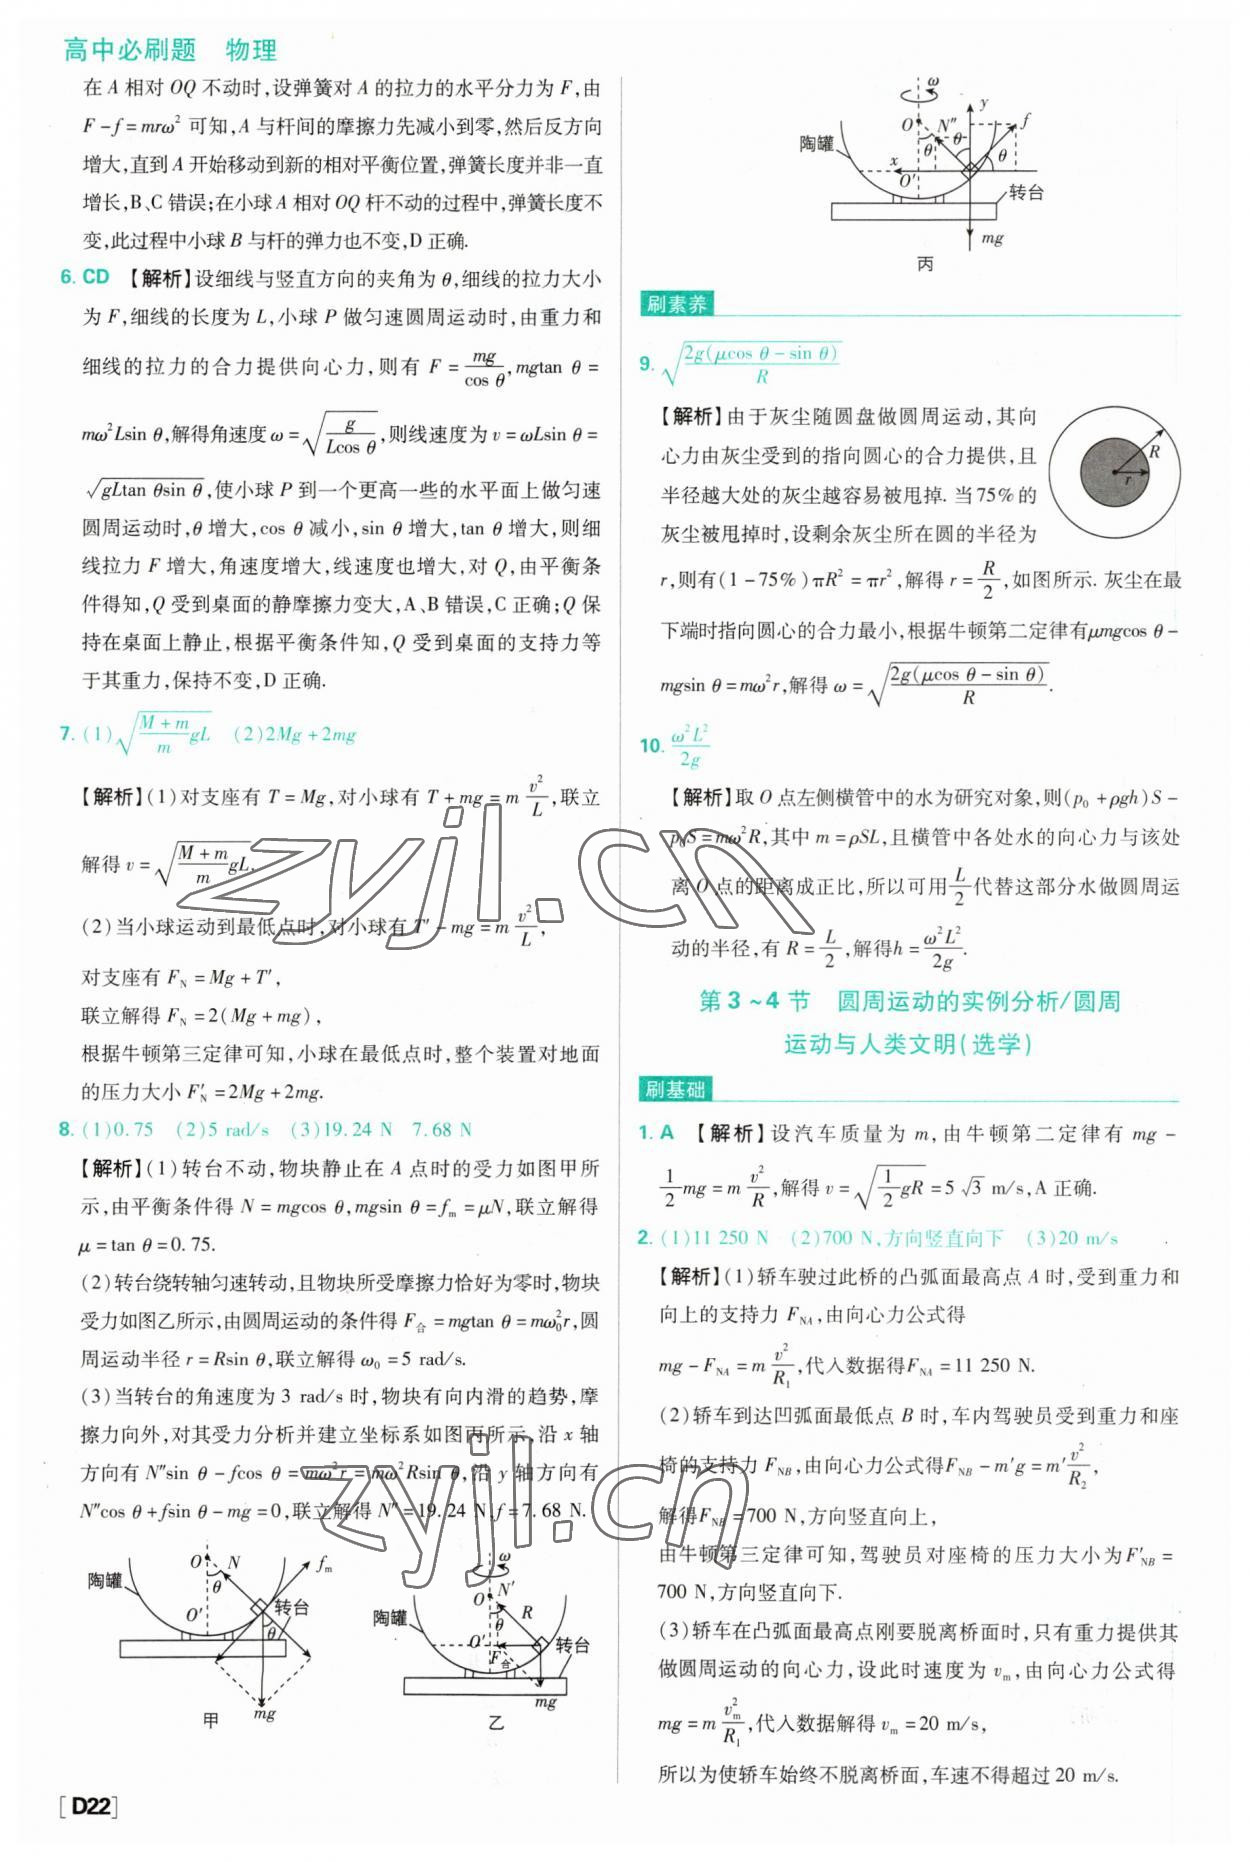 高中必刷题 物理
在 A 相对 OQ 不动时,设弹簧对 A 的拉力的水平分力为 F,由
F-f=mrω² 可知,A 与杆间的摩擦力先减小到零,然后反方向
增大,直到 A 开始移动到新的相对平衡位置,弹簧长度并非一直
增长,B、C 错误;在小球 A 相对 OQ 杆不动的过程中,弹簧长度不
变,此过程中小球 B 与杆的弹力也不变,D 正确.
6. CD 【解析】设细线与竖直方向的夹角为 θ,细线的拉力大小
为 F,细线的长度为 L,小球 P 做匀速圆周运动时,由重力和
细线的拉力的合力提供向心力,则有 F=mg/cos θ,mgtan θ=
mω²Lsin θ,解得角速度 ω=√(g/(Lcos θ)),则线速度为 v=ωLsin θ=
√(gLtan θsin θ),使小球 P 到一个更高一些的水平面上做匀速
圆周运动时,θ 增大,cos θ 减小,sin θ 增大,tan θ 增大,则细
线拉力 F 增大,角速度增大,线速度也增大,对 Q,由平衡条
件得知,Q 受到桌面的静摩擦力变大,A、B 错误,C 正确;Q 保
持在桌面上静止,根据平衡条件知,Q 受到桌面的支持力等
于其重力,保持不变,D 正确.
7. (1)√((M+m)/m gL) (2)2Mg+2mg
【解析】(1)对支座有 T=Mg,对小球有 T+mg=m v²/L,联立
解得 v=√((M+m)/m gL).
(2)当小球运动到最低点时,对小球有 T′-mg=m v²/L,
对支座有 F_N=Mg+T′,
联立解得 F_N=2(Mg+mg),
根据牛顿第三定律可知,小球在最低点时,整个装置对地面
的压力大小 F′_N=2Mg+2mg.
8. (1)0.75 (2)5 rad/s (3)19.24 N 7.68 N
【解析】(1)转台不动,物块静止在 A 点时的受力如图甲所
示,由平衡条件得 N=mgcos θ,mgsin θ=f_m=μN,联立解得
μ=tan θ=0.75.
(2)转台绕转轴匀速转动,且物块所受摩擦力恰好为零时,物块
受力如图乙所示,由圆周运动的条件得 F_合=mgtan θ=mω₀²r,圆
周运动半径 r=Rsin θ,联立解得 ω₀=5 rad/s.
(3)当转台的角速度为 3 rad/s 时,物块有向内滑的趋势,摩
擦力向外,对其受力分析并建立坐标系如图丙所示,沿 x 轴
方向有 N″sin θ-fcos θ=mω²r=mω²Rsin θ,沿 y 轴方向有
N″cos θ+fsin θ-mg=0,联立解得 N″=19.24 N,f=7.68 N.
O N f_m θ
陶罐 O′ 转台
θ
mg
甲
ω
O N′
陶罐 θ R
O′ 转台
F_合
mg
乙
ω
y
O N″ θ f
陶罐 θ θ
x
O′ 转台
mg
丙
刷素养
9. √(2g(μcos θ-sin θ)/R)
【解析】由于灰尘随圆盘做圆周运动,其向
心力由灰尘受到的指向圆心的合力提供,且
半径越大处的灰尘越容易被甩掉. 当75%的
灰尘被甩掉时,设剩余灰尘所在圆的半径为
R
r
r,则有(1-75%)πR²=πr²,解得 r=R/2,如图所示. 灰尘在最
下端时指向圆心的合力最小,根据牛顿第二定律有μmgcos θ-
mgsin θ=mω²r,解得 ω=√(2g(μcos θ-sin θ)/R).
10. ω²L²/2g
【解析】取 O 点左侧横管中的水为研究对象,则(p₀+ρgh)S-
p₀S=mω²R,其中 m=ρSL,且横管中各处水的向心力与该处
离 O 点的距离成正比,所以可用L/2代替这部分水做圆周运
动的半径,有 R=L/2,解得h=ω²L²/2g.
第 3~4 节 圆周运动的实例分析/圆周
运动与人类文明(选学)
刷基础
1. A 【解析】设汽车质量为 m,由牛顿第二定律有 mg-
1/2mg=m v²/R,解得 v=√(1/2 gR)=5√3 m/s,A 正确.
2. (1)11 250 N (2)700 N,方向竖直向下 (3)20 m/s
【解析】(1)轿车驶过此桥的凸弧面最高点 A 时,受到重力和
向上的支持力 F_NA,由向心力公式得
mg-F_NA=m v²/R₁,代入数据得F_NA=11 250 N.
(2)轿车到达凹弧面最低点 B 时,车内驾驶员受到重力和座
椅的支持力 F_NB,由向心力公式得F_NB-m′g=m′v²/R₂,
解得F_NB=700 N,方向竖直向上,
由牛顿第三定律可知,驾驶员对座椅的压力大小为F′_NB=
700 N,方向竖直向下.
(3)轿车在凸弧面最高点刚要脱离桥面时,只有重力提供其
做圆周运动的向心力,设此时速度为 v_m,由向心力公式得
mg=m v_m²/R₁,代入数据解得 v_m=20 m/s,
所以为使轿车始终不脱离桥面,车速不得超过 20 m/s.
zyjl.cn
zyjl.cn
[D22]